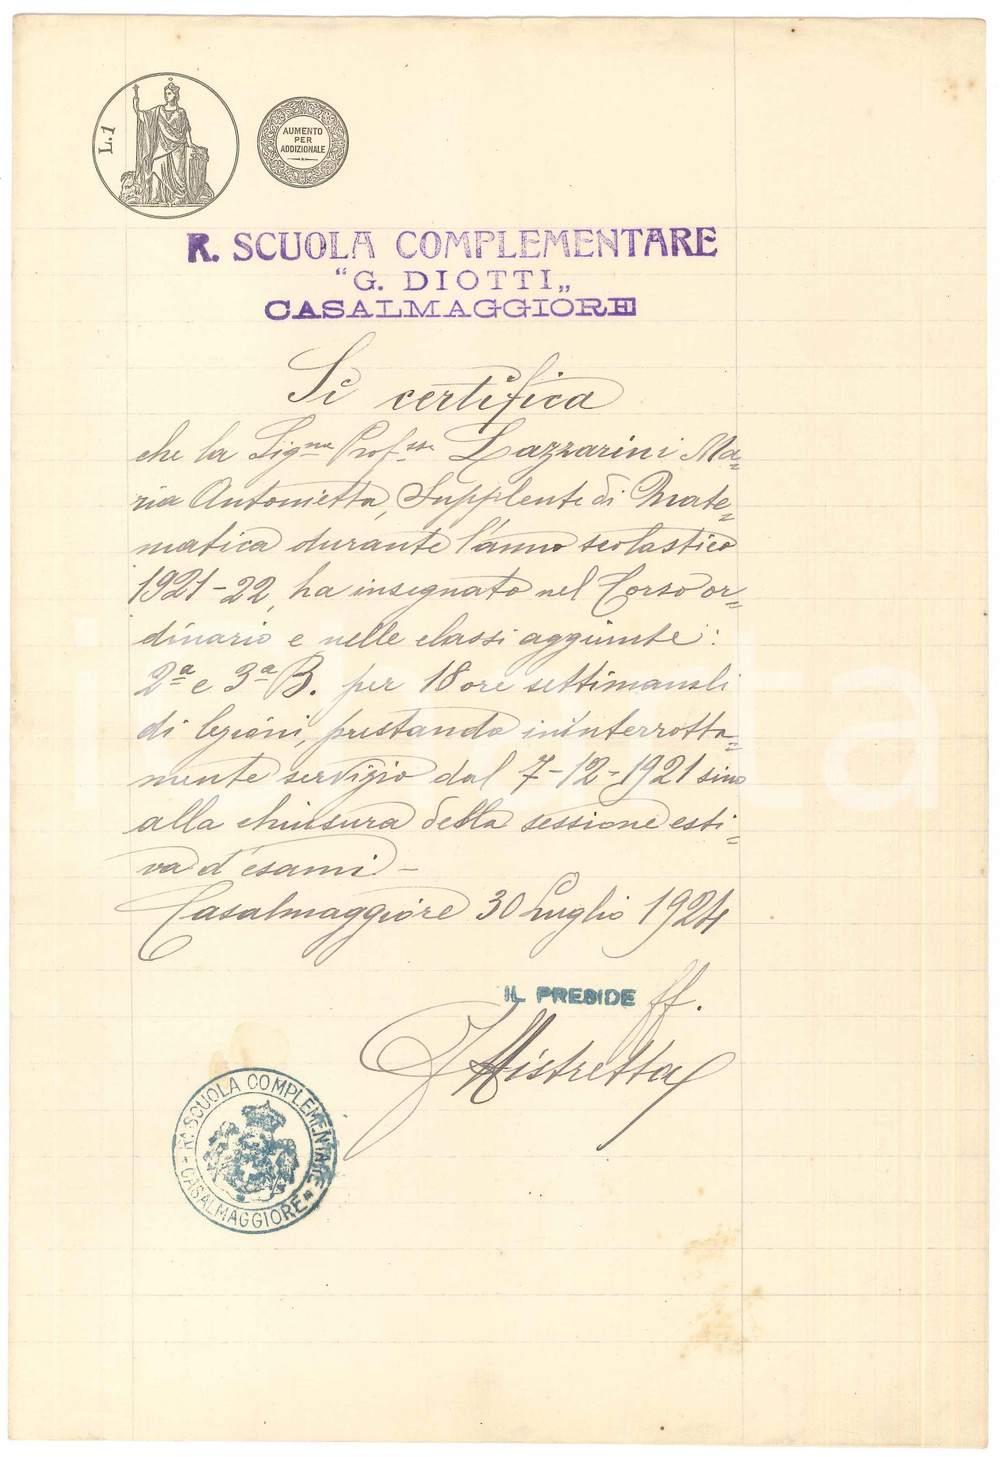 L.1
AUMENTO
PER
ADDIZIONALE
R. SCUOLA COMPLEMENTARE
"G. DIOTTI„
CASALMAGGIORE
Si certifica
che la Sig.na Prof.ssa Lazzarini Ma=
ria Antonietta, Supplente di Mate=
matica durante l'anno scolastico
1921-22, ha insegnato nel Corso or=
dinario e nelle classi aggiunte:
2ª e 3ª B. per 18 ore settimanali
di lezioni, prestando ininterrotta=
mente servizio dal 7-12-1921 sino
alla chiusura della sessione esti=
va d'esami.-
Casalmaggiore 30 Luglio 1924
IL PRESIDE ff.
Mistretta
Rª SCUOLA COMPLEMENTARE
CASALMAGGIORE